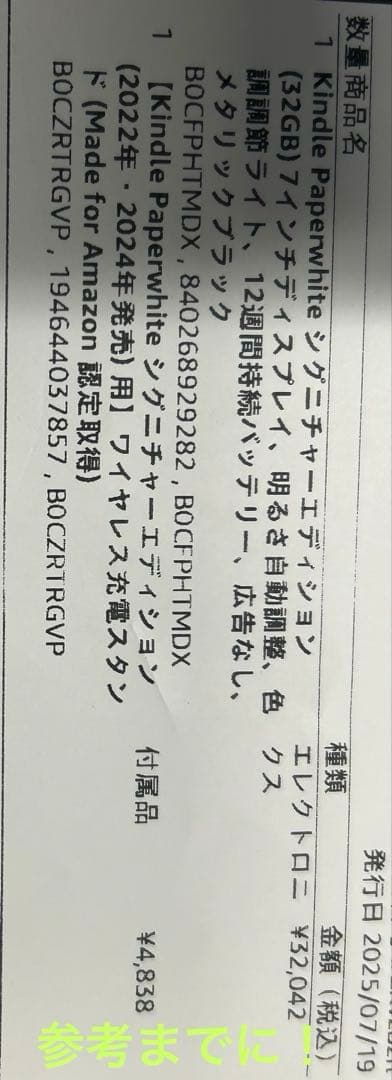 発行日 2025/07/19
数量 商品名 種類 金額（税込）
1 Kindle Paperwhite シグニチャーエディション エレクトロニ ¥32,042
(32GB) 7インチディスプレイ、明るさ自動調整、色 クス
調調節ライト、12週間持続バッテリー、広告なし、
メタリックブラック
B0CFPHTMDX , 840268929282 , B0CFPHTMDX
1 【Kindle Paperwhite シグニチャーエディション 付属品 ¥4,838
(2022年・2024年発売) 用】ワイヤレス充電スタン
ド (Made for Amazon 認定取得)
B0CZRTRGVP , 194644037857 , B0CZRTRGVP
参考までに！